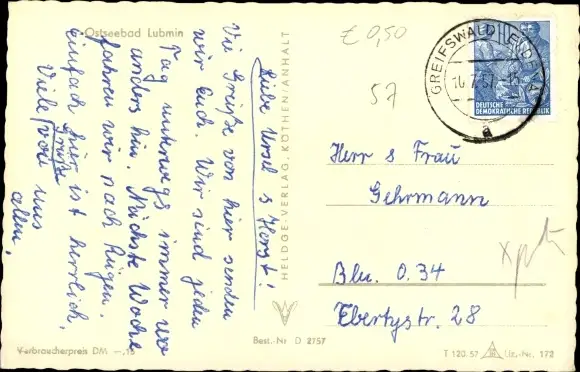 Ostseebad Lubmin
Liebe Ursel & Horst!
Viele Grüße von hier senden
wir Euch. Wir sind jeden
Tag unterwegs immer wo
anders hin. Nächste Woche
fahren wir nach Rügen.
Einfach hier ist herrlich.
Viele Grüße von uns
allen.
HELDGE-VERLAG, KÖTHEN/ANHALT
£ 0,50
57
GREIFSWALD - ELDENA
16.7.57
a
DEUTSCHE
DEMOKRATISCHE REPUBLIK
Herr & Frau
Gehrmann
Bln. O.34
Ebertystr. 28
Verbraucherpreis DM —,15
Best.-Nr D 2757
T 120.57 Liz.-Nr. 172